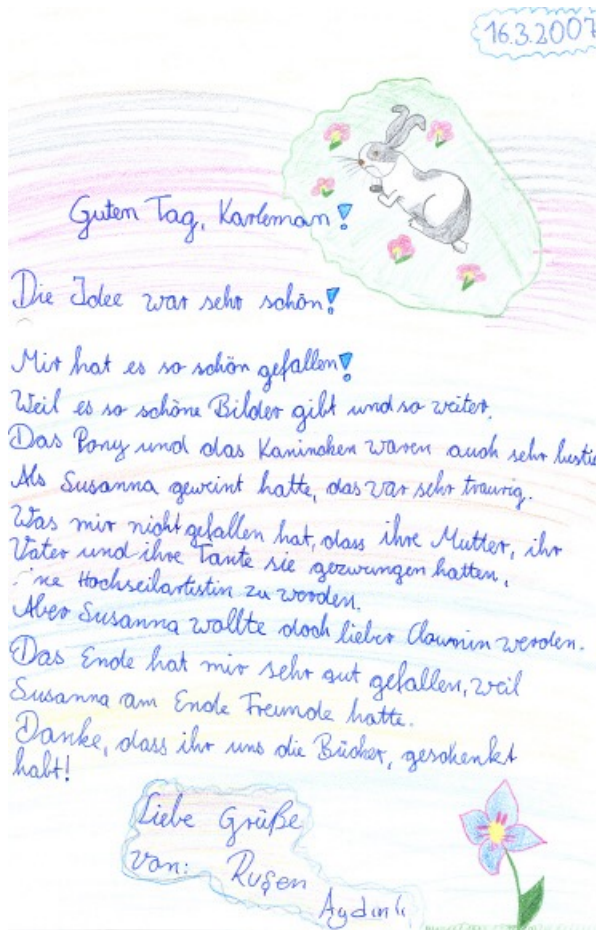 16.3.2007
Guten Tag, Karleman!
Die Idee war sehr schön!
Mir hat es so schön gefallen!
Weil es so schöne Bilder gibt und so weiter.
Das Pony und das Kaninchen waren auch sehr
Als Susanna geweint hatte, das war sehr traurig.
Was mir nicht gefallen hat, dass ihre Mutter, ihr
Vater und ihre Tante sie gezwungen hatten,
Hochseilartistin zu werden.
Aber Susanna wollte doch lieber Clownin werden.
Das Ende hat mir sehr gut gefallen, weil
Susanna am Ende Freunde hatte.
Danke, dass ihr uns die Bücher, geschenkt
habt!
Liebe Grüße
von: Ruşen
Aydınlı